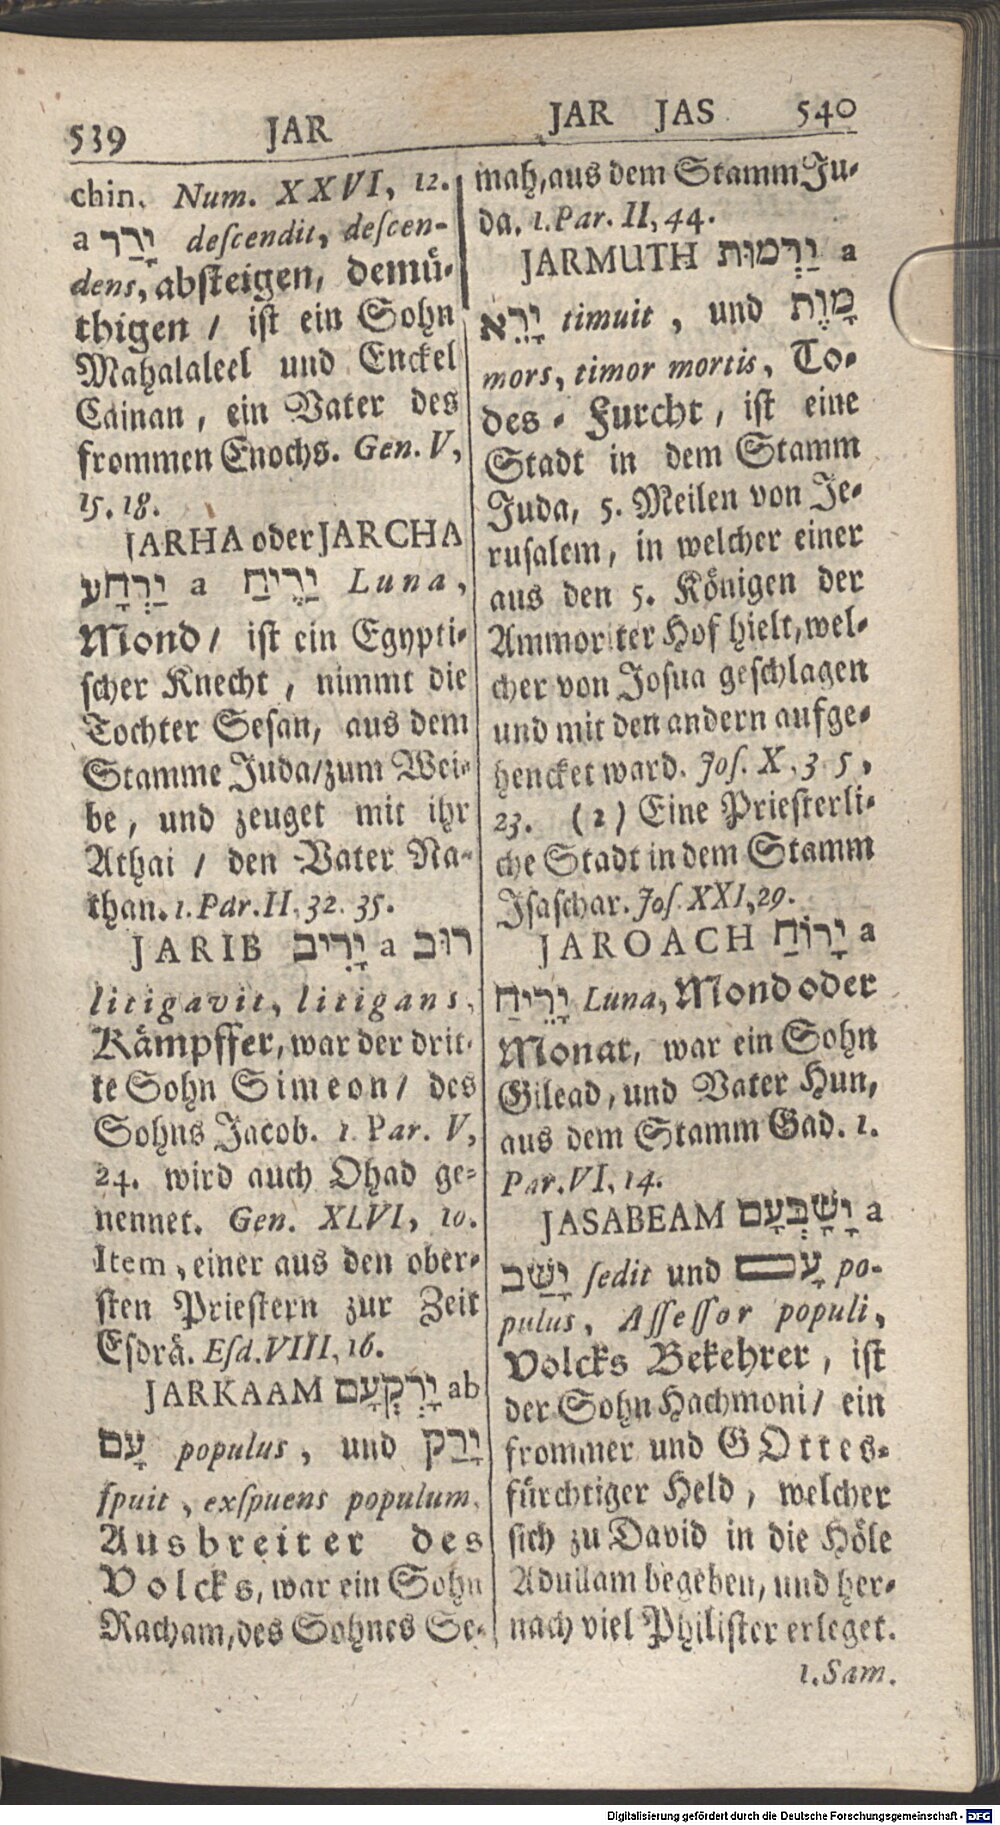 539 JAR
chin. Num. XXVI, 12.
a יָרַד deſcendit, deſcen-
dens, absteigen, demü-
thigen / ist ein Sohn
Mahalaleel und Enckel
Cainan, ein Vater des
frommen Enochs. Gen. V,
15. 18.
JARHA oder JARCHA
יַרְחָע a יָרֵיחַ Luna,
Mond / ist ein Egypti-
scher Knecht, nimmt die
Tochter Sesan, aus dem
Stamme Juda / zum Wei-
be, und zeuget mit ihr
Athai / den Vater Na-
than. 1. Par. II, 32. 35.
JARIB יָרִיב a רוּב
litigavit, litigans,
Kämpffer, war der drit-
te Sohn Simeon / des
Sohns Jacob. 1 Par. V,
24. wird auch Ohad ge-
nennet. Gen. XLVI, 10.
Item, einer aus den ober-
sten Priestern zur Zeit
Esdrä. Eſd. VIII, 16.
JARKAAM יָרְקְעָם ab
עָם populus, und יָרַק
ſpuit, exſpuens populum,
Ausbreiter des
Volcks, war ein Sohn
Racham, des Sohnes Se-
JAR JAS 540
mah, aus dem Stamm Ju-
da. 1. Par. II, 44.
JARMUTH יַרְמוּת a
יָרֵא timuit, und מָוֶת
mors, timor mortis, To-
des-Furcht, ist eine
Stadt in dem Stamm
Juda, 5. Meilen von Je-
rusalem, in welcher einer
aus den 5. Königen der
Ammoriter Hof hielt, wel-
cher von Josua geschlagen
und mit den andern aufge-
hencket ward. Joſ. X, 3 5,
23. (2) Eine Priesterli-
che Stadt in dem Stamm
Isaschar. Joſ. XXI, 29.
JAROACH יָרוֹחַ a
יָרֵיחַ Luna, Mond oder
Monat, war ein Sohn
Gilead, und Vater Hun,
aus dem Stamm Gad. 1.
Par. VI, 14.
JASABEAM יָשָׁבְעָם a
יָשַׁב ſedit und עָם po-
pulus, Aſſeſſor populi,
Volcks Bekehrer, ist
der Sohn Hachmoni / ein
frommer und GOttes-
fürchtiger Held, welcher
sich zu David in die Höle
Adullam begeben, und her-
nach viel Philister erleget.
1. Sam.
Digitalisierung gefördert durch die Deutsche Forschungsgemeinschaft - DFG